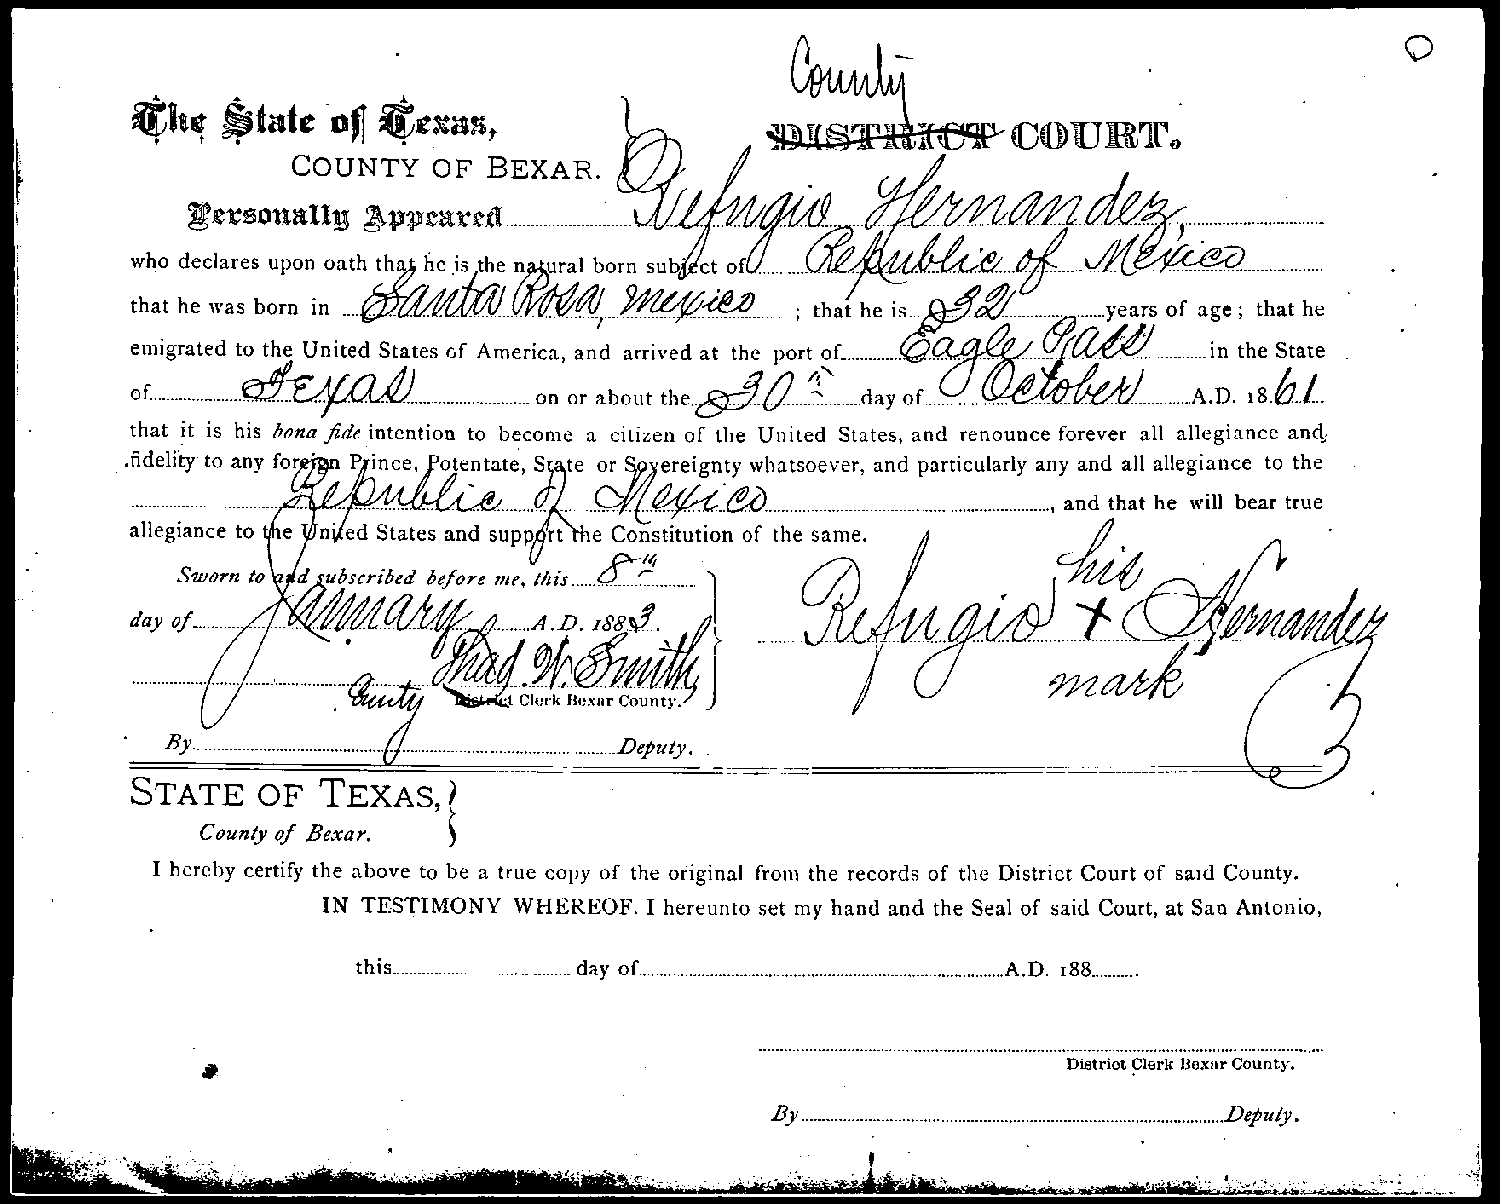 County
The State of Texas, DISTRICT COURT.
COUNTY OF BEXAR.
Personally Appeared Refugio Hernandez,
who declares upon oath that he is the natural born subject of Republic of Mexico
that he was born in Santa Rosa, Mexico ; that he is 32 years of age; that he
emigrated to the United States of America, and arrived at the port of Eagle Pass in the State
of Texas on or about the 30th day of October A.D. 1861
that it is his bona fide intention to become a citizen of the United States, and renounce forever all allegiance and
fidelity to any foreign Prince, Potentate, State or Sovereignty whatsoever, and particularly any and all allegiance to the
Republic of Mexico, and that he will bear true
allegiance to the United States and support the Constitution of the same.
Sworn to and subscribed before me, this 8th
day of January A.D. 1883.
his
Refugio X Hernandez
mark
Thad. W. Smith
County District Clerk Bexar County.
By Deputy.
STATE OF TEXAS,
County of Bexar.
I hereby certify the above to be a true copy of the original from the records of the District Court of said County.
IN TESTIMONY WHEREOF. I hereunto set my hand and the Seal of said Court, at San Antonio,
this day of A.D. 188
District Clerk Bexar County.
By Deputy.